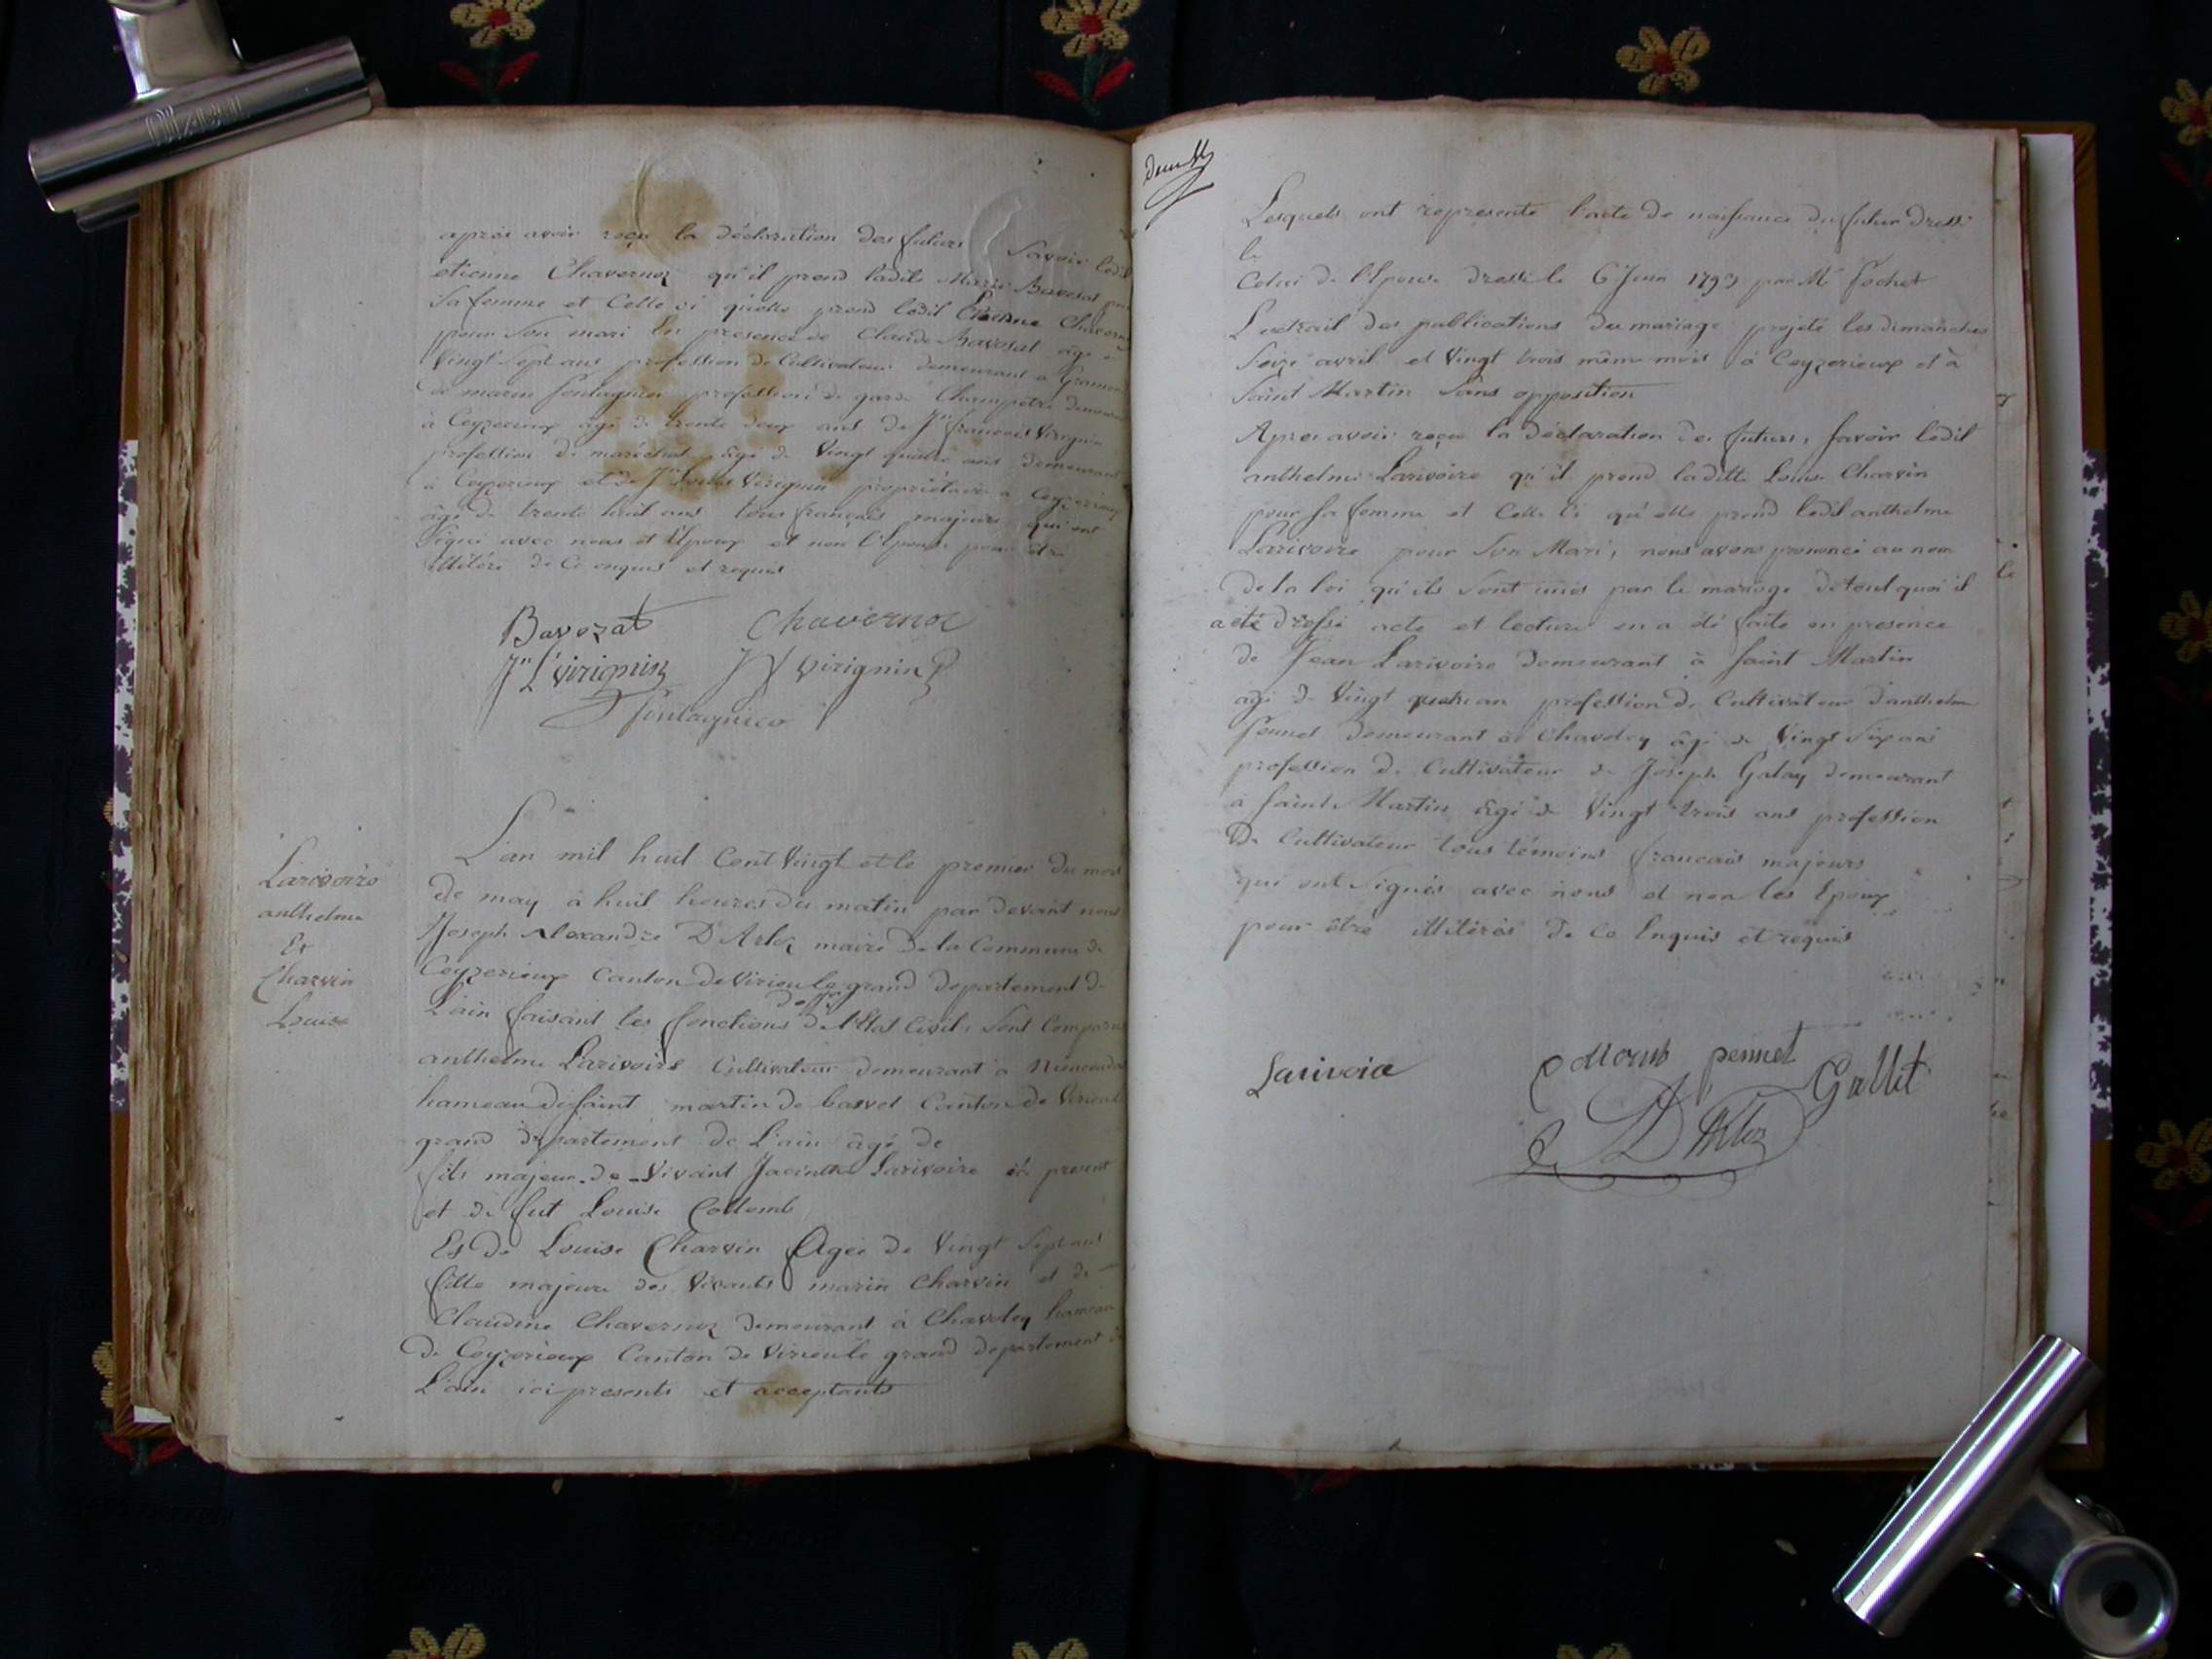 après avoir reçu la déclaration des futurs Savoir ledit
etienne Chavernoz qu'il prend ladite Marie Bavozat pour
Sa femme et Celle ci quelle prend ledit Etienne Chavernoz
pour Son mari En presence de Claude Bavozat âgé de
Vingt Sept ans profession de Cultivateur demeurant a
de marin fontagnieu profession de garde Champetre demeurant
à Ceyzerieux agé de trente deux ans de Jn francois Virignin
profession de maréchal âgé de Vingt quatre ans demeurant
à Ceyzerieux et de Jn Louis Virignin propriétaire a Ceyzerieux
âgé de trente huit ans tous français majeurs qui ont
Signé avec nous et l'Epoux et non l'Epouse pour être
illitéré de Ce enquis et requis
Bavozat Chavernoz
Jn L Virignin J f Virignin
fontagnieu
Larivoire
anthelme
Et
Charvin
Louise
L'an mil huit Cent Vingt et le premier du mois
de may à huit heures du matin par devant nous
Joseph Alexandre D'Arloz maire De la Commune de
Ceyzerieux Canton de Virieu le grand Departement de
L'ain faisant les fonctions d'off. De l'Etat Civil, Sont Comparus
anthelme Larivoire Cultivateur Demeurant à
hameau de Saint martin de bavel Canton de Virieu le
grand departement de L'ain âgé de
fils majeur de Vivant Jacinthe Larivoire ici present
et de fut Louise Collomb
Et De Louise Charvin Agée de Vingt Sept ans
fille majeure des Vivants marin Charvin et de
Claudine Chavernoz demeurant à Chavoley hameau
de Ceyzerieux Canton de Virieu le grand departement de
L'ain ici presents et acceptants
Lesquels ont represente l'acte de naissance du futur Dressé
le
Celui de l'Epouse Dressé le 6 Juin 1793 par Mr Fochet
L'extrait des publications du mariage projeté les dimanches
Seize avril et Vingt trois même mois à Ceyzerieux et à
Saint Martin Sans opposition
Apres avoir reçu la déclaration des futurs, Savoir ledit
anthelme Larivoire qu'il prend laditte Louise Charvin
pour Sa femme et Celle Ci qu'elle prend ledit anthelme
Larivoire pour Son Mari, nous avons prononcé au nom
de la loi qu'ils Sont unis par le mariage de tout quoi il
a été Dressé acte et lecture en a été faite en presence
de Jean Larivoire demeurant à Saint Martin
agé de Vingt quatre an profession de Cultivateur d'anthelme
demeurant à Chavoley âgé de Vingt Six ans
profession de Cultivateur de Joseph Galay demeurant
à Saint Martin âgé de Vingt trois ans profession
De Cultivateur tous témoins francais majeurs
qui ont Signés avec nous et non les Epoux
pour être illitérés de Ce Enquis et requis
Larivoire pennet Gallet
D'Arloz